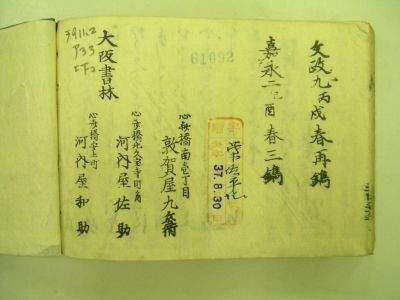 文政九丙戌春再鐫
嘉永二己酉春三鐫
心斎橋南壱丁目
敦賀屋九兵衛
心斎橋北久宝寺町角
河内屋佐助
心斎橋安土町
河内屋和助
大阪書林
37.8.30
61092
5911.2